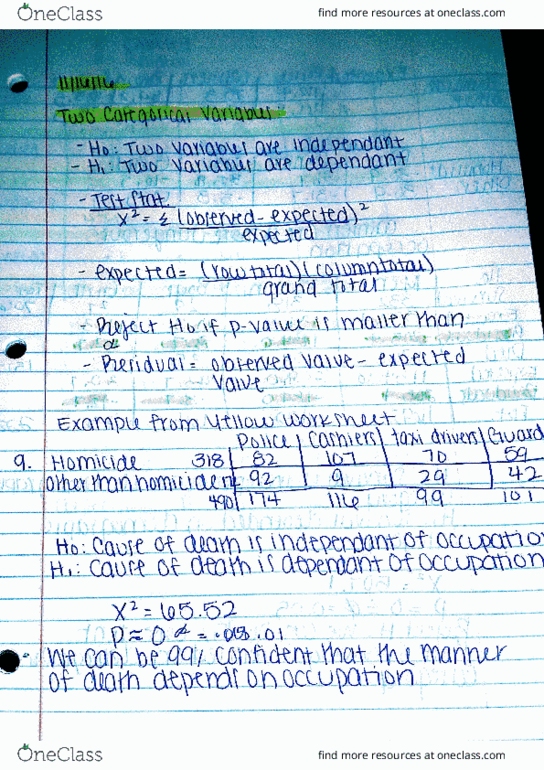 OneClass
find more resources at oneclass.com
11/16/16
Two Categorical Variables
- Ho: Two variables are independant
- H1: Two variables are dependant
- Test Stat.
X² = Σ (observed - expected)²
expected
- expected = (row total)(column total)
grand total
- Reject Ho if p-value is maller than
α
- Residual = observed value - expected
value
Example from yellow worksheet
Police cashiers taxi drivers Guard
9. Homicide 318 82 107 70 59
other than homicide 92 9 29 42
490 174 116 99 101
Ho: cause of death is independant of occupatio
H1: cause of death is dependant of occupation
X² = 65.52
P ≈ 0 α = .01
We can be 99% confident that the manner
of death depends on occupation
OneClass
find more resources at oneclass.com